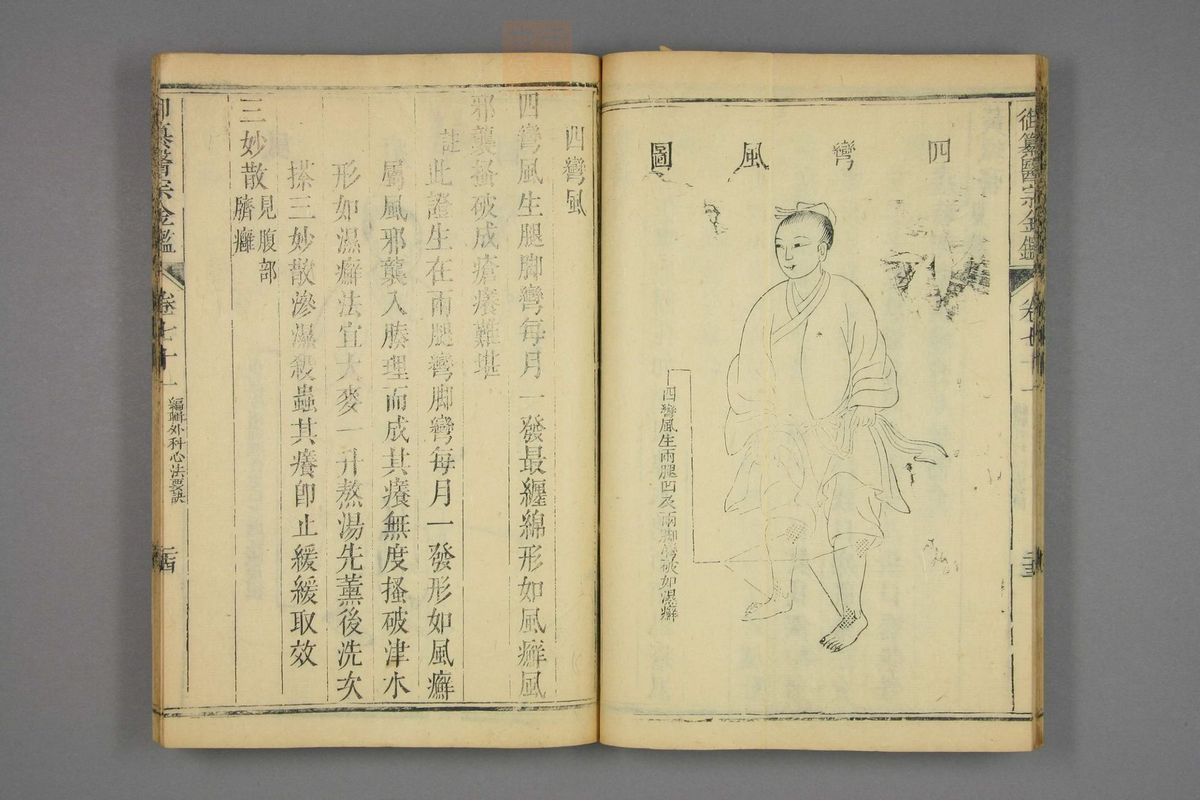 御纂醫宗金鑑
卷七十一
四彎風圖
四彎風生兩腿凹及兩脚彎破如濕癬
四彎風
四彎風生腿脚彎每月一發最纏綿形如風癬風
邪襲搔破成瘡癢難堪
註
此證生在兩腿彎脚彎每月一發形如風癬
屬風邪襲入腠理而成其癢無度搔破津水
形如濕癬法宜大麥一升熬湯先薰後洗次
搽三妙散滲濕殺蟲其癢卽止緩緩取效
三妙散
見腹部
臍癰
御纂醫宗金鑑
卷七十一
編輯外科心法要訣